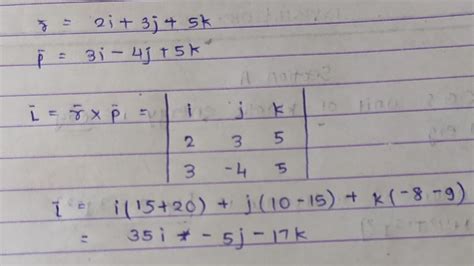 r̄ = 2i + 3j + 5k
p̄ = 3i - 4j + 5k
L̄ = r̄ × p̄ = | i j k |
| 2 3 5 |
| 3 -4 5 |
L̄ = i(15+20) + j(10-15) + k(-8-9)
= 35i - 5j - 17k